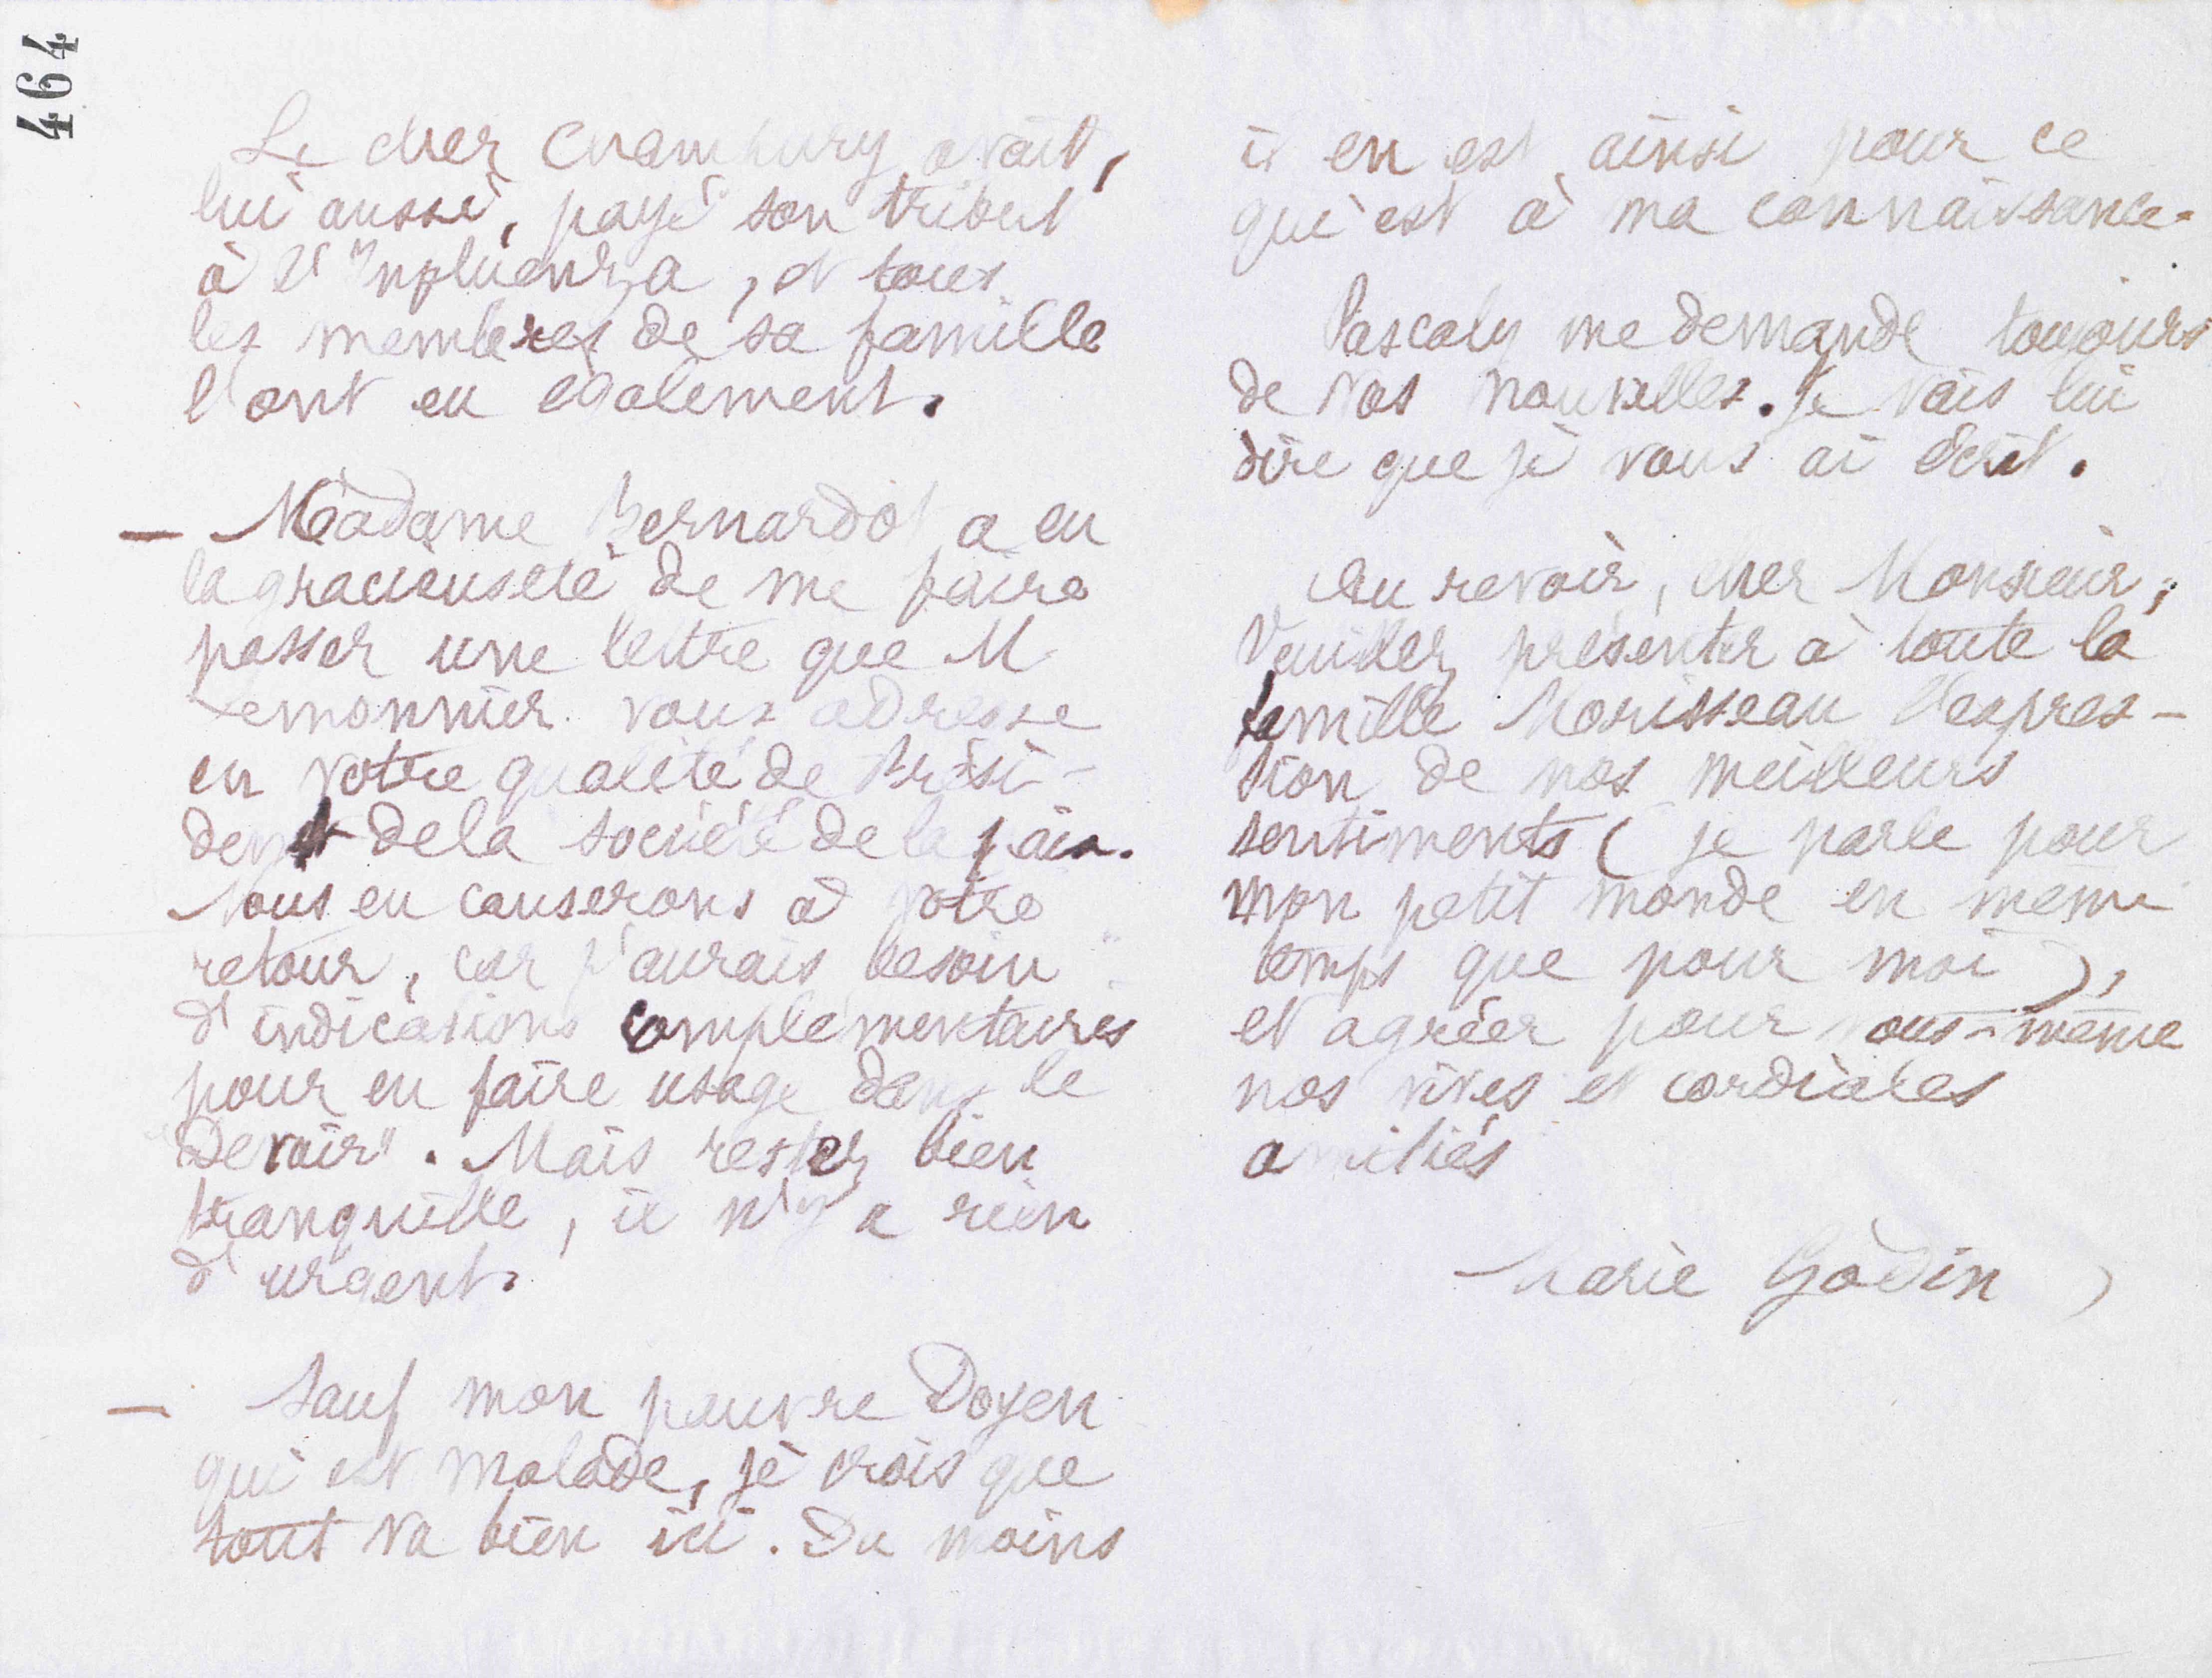 464
Le cher Chambury avait,
lui aussi, payé son tribut
à l'Influenza, et tous
les membres de sa famille
l'ont eu également.
— Madame Bernardot a eu
la gracieuseté de me faire
passer une lettre que M.
Lemonnier vous adresse
en votre qualité de Prési-
dent de la société de la paix.
Nous en causerons à votre
retour, car j'aurais besoin
d'indications complémentaires
pour en faire usage dans le
"Devoir". Mais restez bien
tranquille, il n'y a rien
d'urgent.
— Sauf mon pauvre Doyen
qui est malade, je crois que
tout va bien ici. Du moins
il en est ainsi pour ce
qui est à ma connaissance.
Pascaly me demande toujours
de vos nouvelles. Je vais lui
dire que je vous ai écrit.
Au revoir, cher Monsieur,
Veuillez présenter à toute la
famille Morisseau l'expres-
sion de nos meilleurs
sentiments (je parle pour
mon petit monde en même
temps que pour moi),
et agréer pour vous-même
nos vives et cordiales
amitiés
Marie Godin